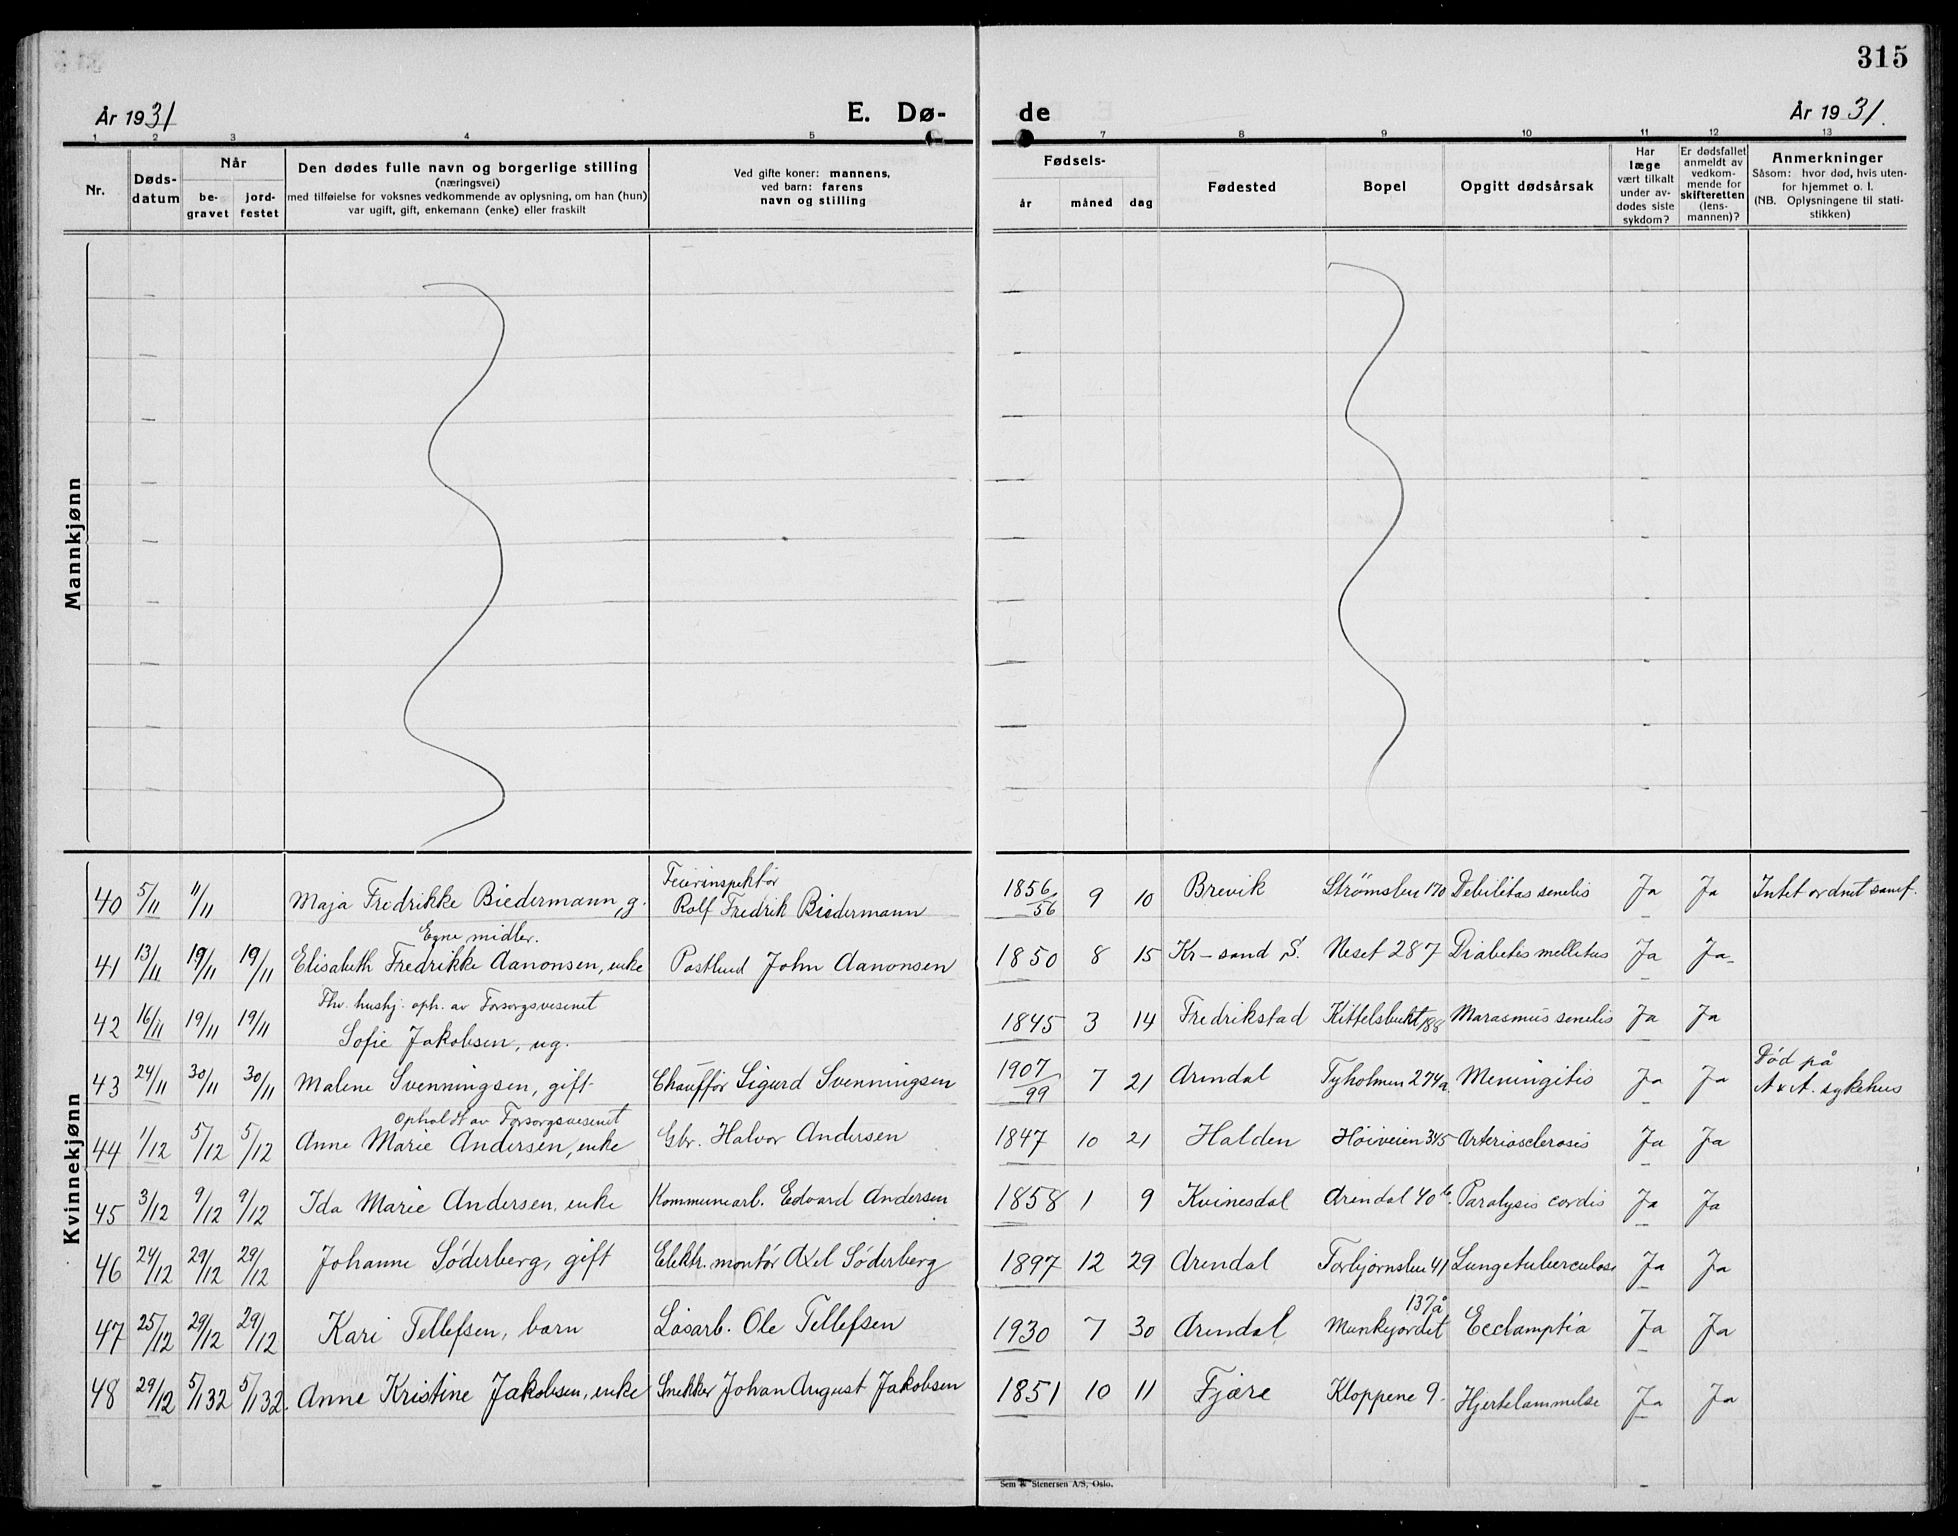 315
År 1931
E. Dø-
de
År 1931.
1 2 3 4 5 7 8 9 10 11 12 13
Nr.
Døds-
datum
Når
be-
gravet
jord-
festet
Den dødes fulle navn og borgerlige stilling
(næringsvei)
med tilføielse for voksnes vedkommende av oplysning, om han (hun)
var ugift, gift, enkemann (enke) eller fraskilt
Ved gifte koner: mannens,
ved barn: farens
navn og stilling
Fødsels-
år
måned
dag
Fødested
Bopel
Opgitt dødsårsak
Har
læge
vært tilkalt
under av-
dødes siste
sykdom?
Er dødsfallet
anmeldt av
vedkom-
mende for
skifteretten
(lens-
mannen)?
Anmerkninger
Såsom: hvor død, hvis uten-
for hjemmet o. l.
(NB. Oplysningene til stati-
stikken)
Mannkjønn
Kvinnekjønn
Feierinspektør
40 5/11 11/11 Maja Fredrikke Biedermann, g. Rolf Fredrik Biedermann 1856/56 9 10 Brevik Strømsbu 170 Debilitas senilis Ja Ja Intet ordnet samf.
Egne midler.
41 13/11 19/11 19/11 Elisabeth Fredrikke Aanonsen, enke Postbud John Aanonsen 1850 8 15 Kr-sand S. Neset 287 Diabetis mellitus Ja Ja
Fhv. hushj. oph. av Forsorgsvesenet
42 16/11 19/11 19/11 Sofie Jakobsen, ug. 1845 3 14 Fredrikstad Kittelsbukt 188 Marasmus senilis Ja Ja
Død på
43 24/11 30/11 30/11 Malene Svenningsen, gift Chauffør Sigurd Svenningsen 1907/99 7 21 Arendal Tyholmen 274a Meningitis Ja Ja A. A. sykehus
Opholdt av Forsorgsvesenet
44 1/12 5/12 5/12 Anne Marie Andersen, enke Gbr. Halvor Andersen 1847 10 21 Halden Høiveien 345 Arteriosclerosis Ja Ja
45 3/12 9/12 9/12 Ida Marie Andersen, enke Kommunearb. Edvard Andersen 1858 1 9 Kvinesdal Arendal 40b. Paralysis cordis Ja Ja
46 24/12 29/12 29/12 Johanne Søderberg, gift Elektr. montør Axel Søderberg 1897 12 29 Arendal Torbjørnsbu 41 Lungetuberculose Ja Ja
137å
47 25/12 29/12 29/12 Kari Tellefsen, barn Løsarb. Ole Tellefsen 1930 7 30 Arendal Munkejordet Ecclamptia Ja Ja
48 29/12 5/1 32 5/1 32. Anne Kristine Jakobsen, enke Snekker Johan August Jakobsen 1851 10 11 Fjære Kloppene 9. Hjertelammelse Ja Ja
Sem & Stenersen A/S, Oslo.